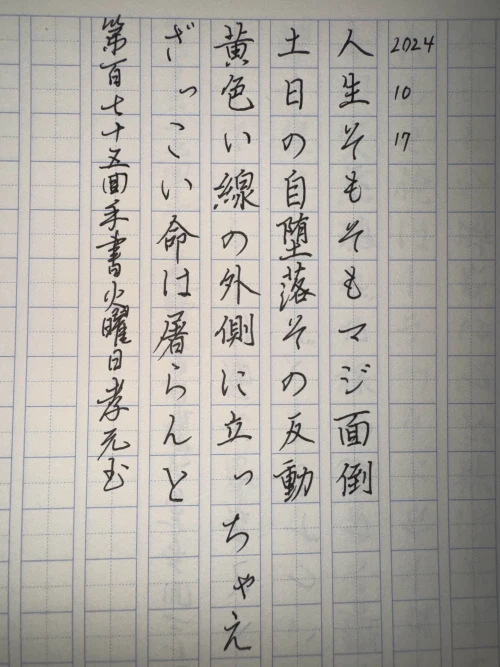 2024 10 17
人生そもそもマジ面倒
土日の自堕落その反動
黄色い線の外側に立っちゃえ
ざっこい命は屠らんと
第百七十五回手書火曜日孝元玉